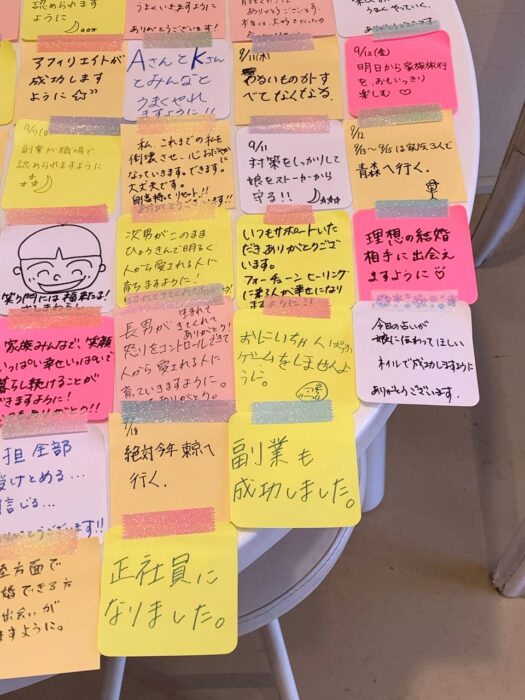 認められます
ように
ありがとうございます!
うまくやっていく。
アフィリエイトが
成功します
ように
AさんとKさん
とみんなと
うまくやれ
ますように!!
9/11(水)
わるいものがす
べてなくなる。
9/12(金)
明日から家族旅行
を、おもいっきり
楽しむ ♡
9/7(日)
副業が職場で
認められますように
私、これまでの私を
倒壊させ、
なっていきます。できます。
大丈夫です。
リセット!!
ありがとうございます!!
9/11
対策をしっかりして
娘をストーカーから
守る!!
9/12
9/13〜9/15は家族3人で
青森へ行く。
笑う門には福来たる!
次男がこのまま
ひょうきんで明るく
人から愛される人に
育ちますように!
ありがとうございます!
いつもサポートいた
だきありがとうござ
います。
フォーチューンヒーリング
に来る人が幸せになり
ますように!!
理想の結婚
相手に出会え
ますように♡
家族みんなで、笑顔
いっぱい幸せいっぱいで
暮らし続けることが
できますように!
ありがとう!!
長男が
生まれて
きてくれて
ありがとう!
怒りをコントロールできて
人から愛される人に
育っていきますように。
ありがとう。
おにいちゃんばっか
ゲームをしませんよ
うに。
今日の占いが
娘に伝わってほしい
ネイルで成功しますように
ありがとうございます。
担 全部
受けとめる…
信じる…
ありがとうございます!!
9/18
絶対今年東京へ
行く.
副業も
成功しました。
方面で
婚できる方
出会いが
ますように。
正社員に
なりました。